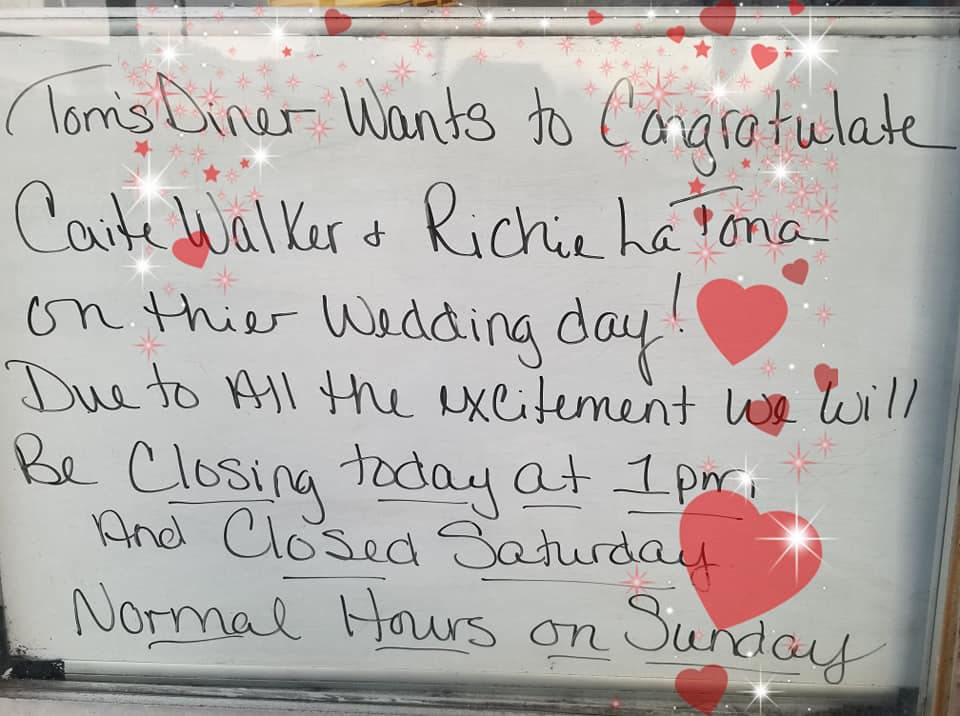 Tom's Diner Wants to Congratulate
Caite Walker & Richie LaTona
on thier Wedding day!
Due to All the excitement we will
Be Closing today at 1pm.
And Closed Saturday
Normal Hours on Sunday